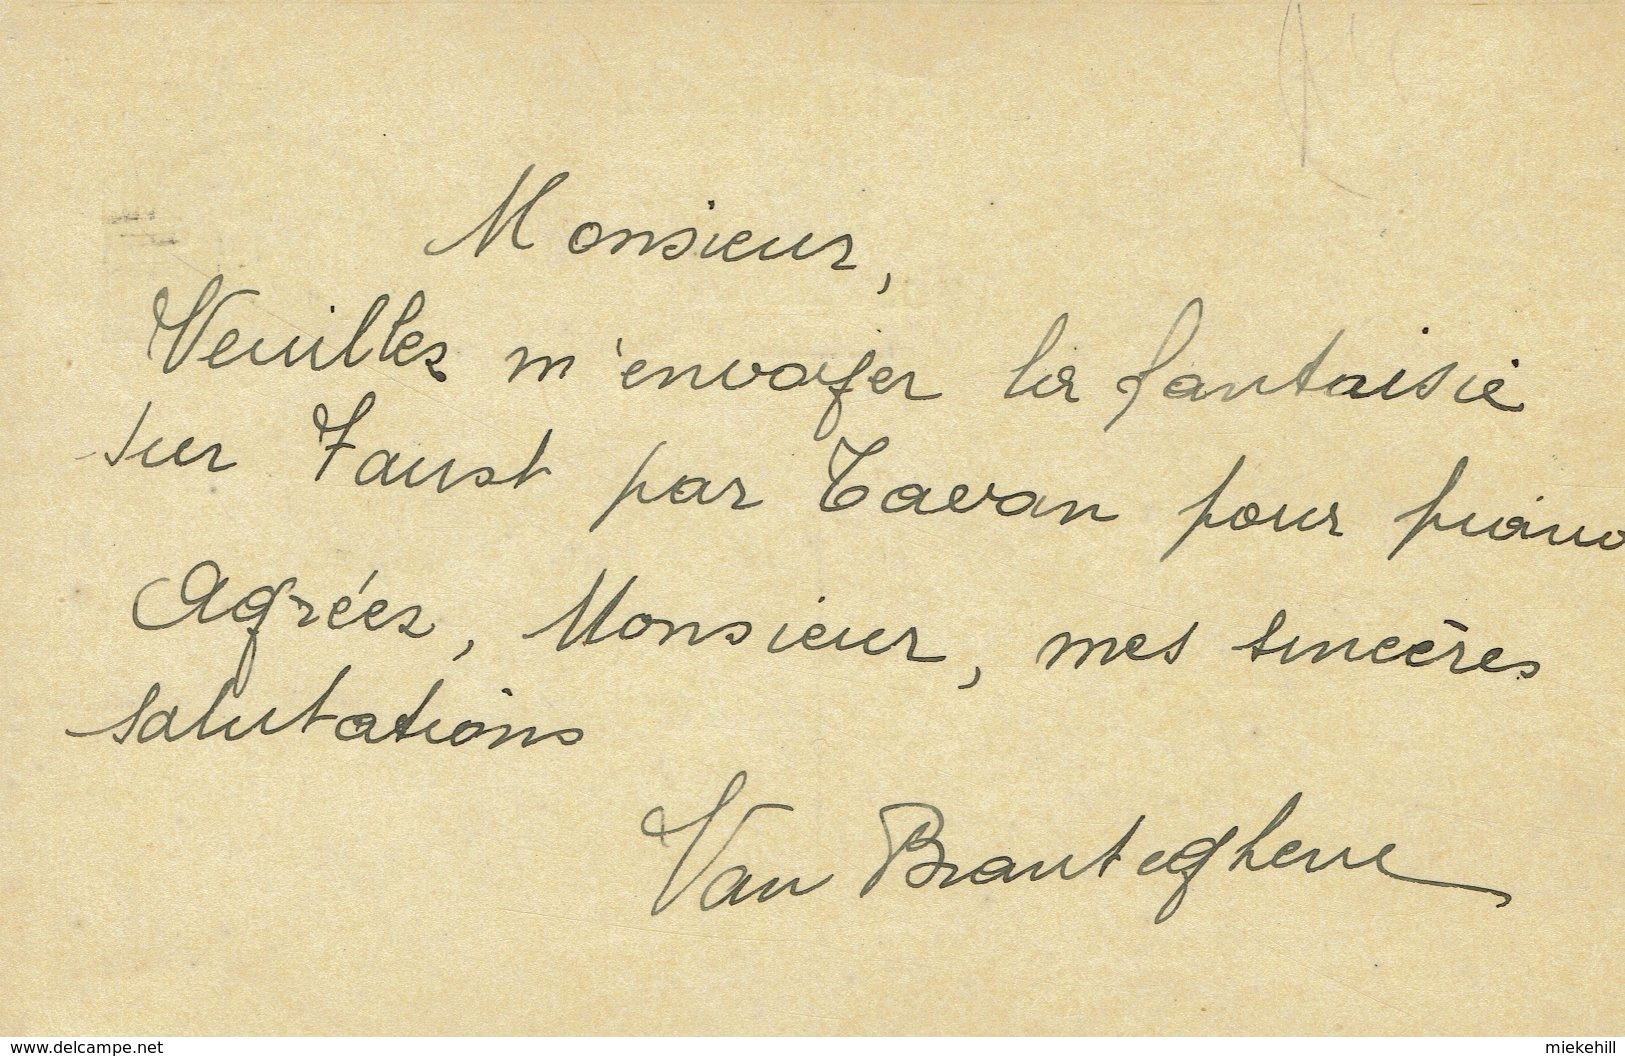 Monsieur,
Veuillez m'envoyer la fantaisie
sur Faust par Tavan pour piano
Agréez, Monsieur, mes sincères
salutations
Van Branteghem
www.delcampe.net
miekehill